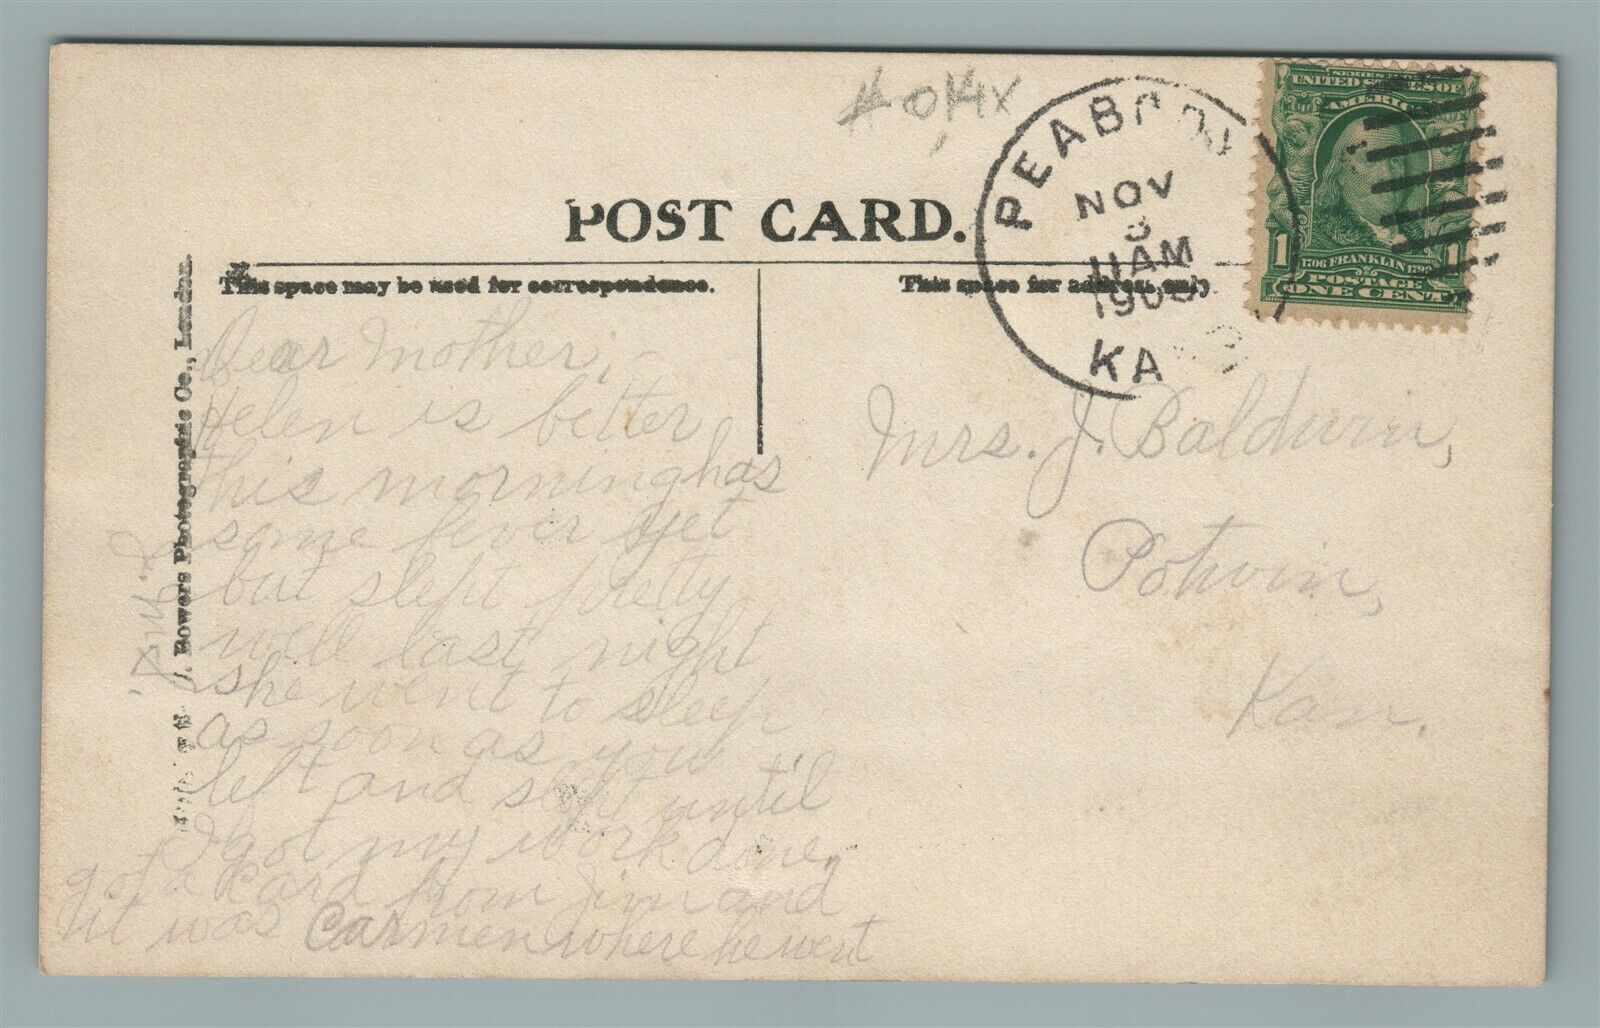 # 0,14x
PEABODY
NOV
3
11 AM
KANS
SERIES OF
UNITED STATES OF
AMERICA
1 1796 FRANKLIN 1790 1
POSTAGE
ONE CENT
POST CARD.
This space may be used for correspondence.
This space for address only.
J. Bowers Photographic Co., London.
Dear Mother;
Helen is better
this morning has
some fever yet
but slept pretty
well last night
she went to sleep
as soon as you
left and slept until
I got my work done,
got a card from Jim and
it was Carmen where he went
Mrs. J. Baldwin,
Potwin,
Kan.